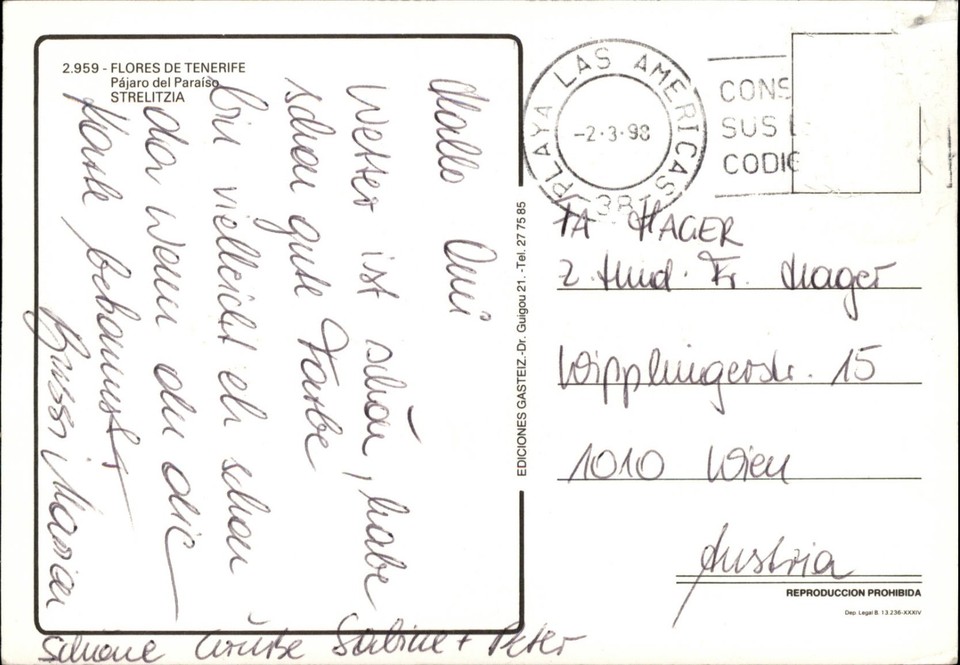 2.959 - FLORES DE TENERIFE
Pájaro del Paraíso
STRELITZIA
Hallo Omi
Wetter ist schön, habe
schon gute Farbe
bin vielleicht eh schon
da wenn du die
Karte bekommst
Bussi Maria
schöne Grüße Sabine + Peter
EDICIONES GASTEIZ.-Dr. Guigou 21. -Tel. 27 75 85
PLAYA LAS AMERICAS
-2·3·98
38
CONS
SUS
CODIG
FA HAGER
z. Hnd. Fr. Hager
Wipplingerstr. 15
1010 Wien
Austria
REPRODUCCION PROHIBIDA
Dep. Legal B. 13.236-XXXIV